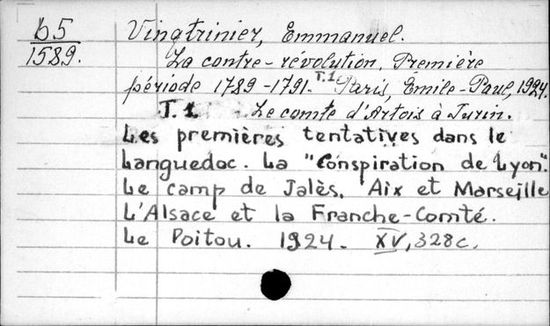 65
1589.
Vingtrinier, Emmanuel.
La contre-révolution. Première
période 1789-1791. T.1. Paris, Émile-Paul, 1924.
T.1. Le comte d'Artois à Turin.
Les premières tentatives dans le
Languedoc. La "Conspiration de Lyon".
Le camp de Jalès. Aix et Marseille
L'Alsace et la Franche-Comté.
Le Poitou. 1924. XV, 328c.